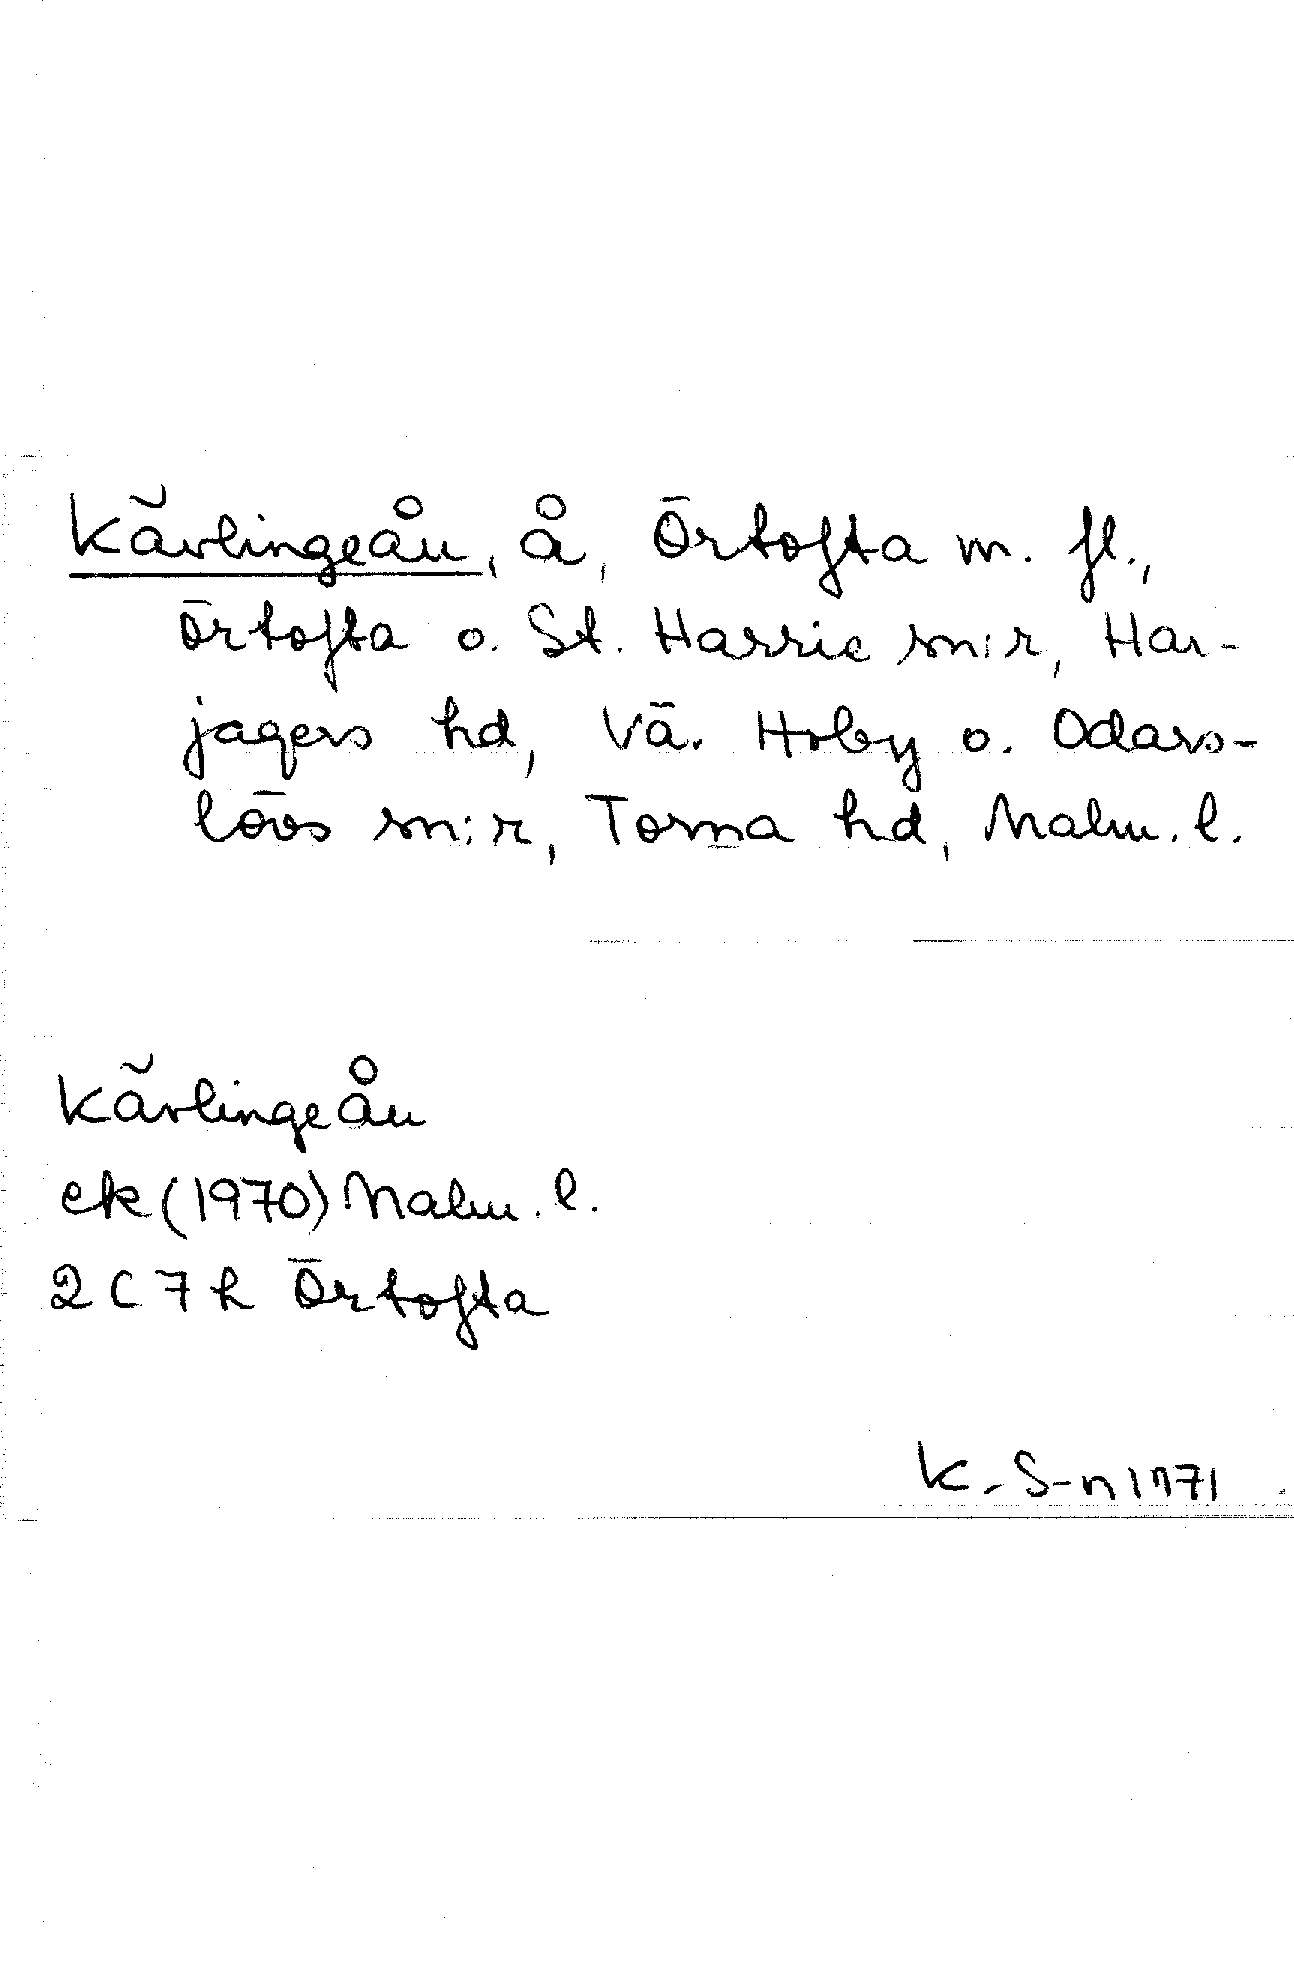 Kävlingeån, å, Örtofta m. fl.,
Örtofta o. St. Harrie sn:r, Har-
jagers hd, Vä. Hoby o. Odars-
lövs sn:r, Torna hd, Malm. l.
Kävlingeån
ek (1970) Malm. l.
2 C 7 h Örtofta
K. S-n 1971